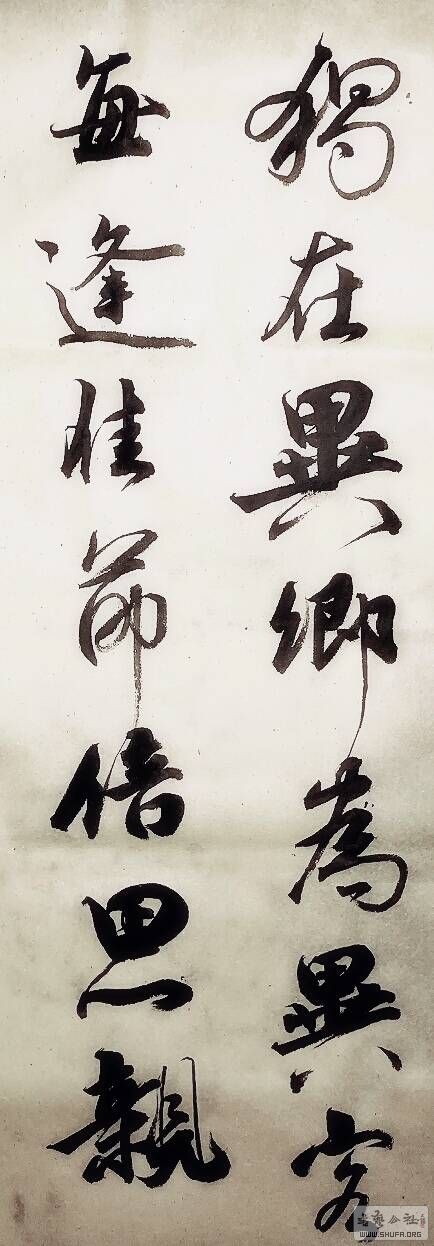 獨在異鄉為異客
每逢佳節倍思親
WWW.SHUFA.ORG